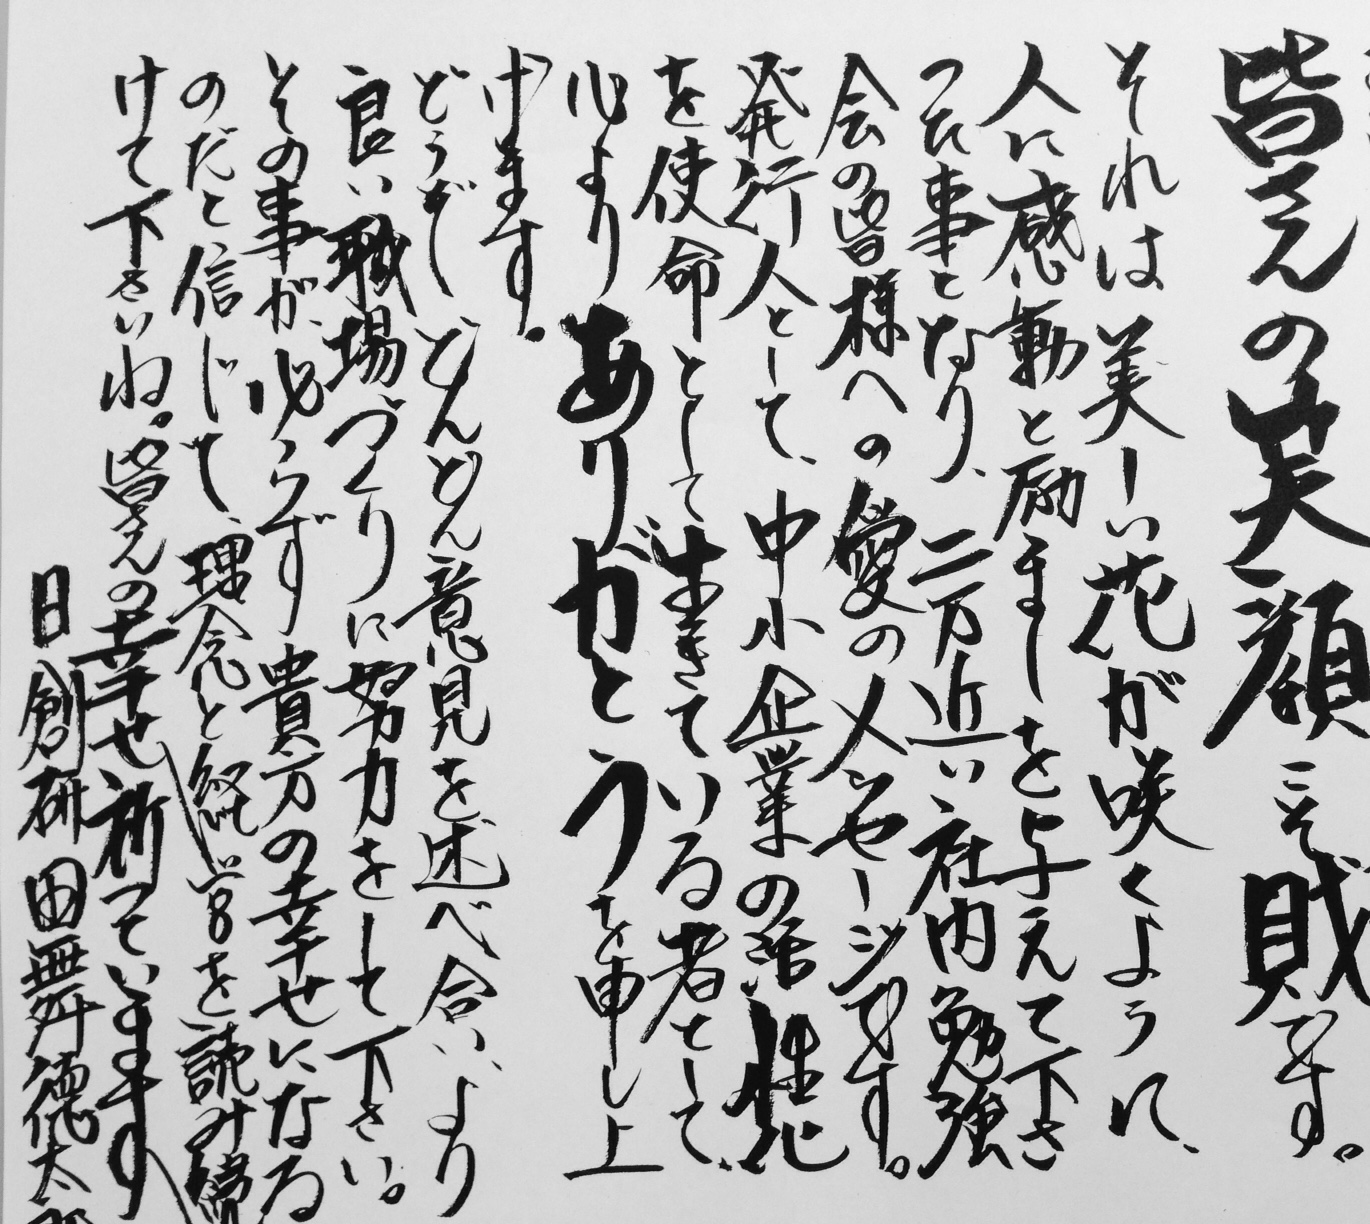 皆さんの笑顔こそ財です。
それは美しい花が咲くように、
人に感動と励ましを与えて下さ
った事となり、二万近い社内勉強
会の皆様への愛のメッセージです。
発行人として、中小企業の活性化
を使命として生きている者として、
心よりありがとうを申し上
げます。
どうぞどんどん意見を述べ合い、より
良い職場づくりに努力をして下さい。
その事が、必らず貴方の幸せになる
のだと信じて、理念と経営を読み続
けて下さいね。皆さんの幸せ祈っています
日創研 田舞徳太郎